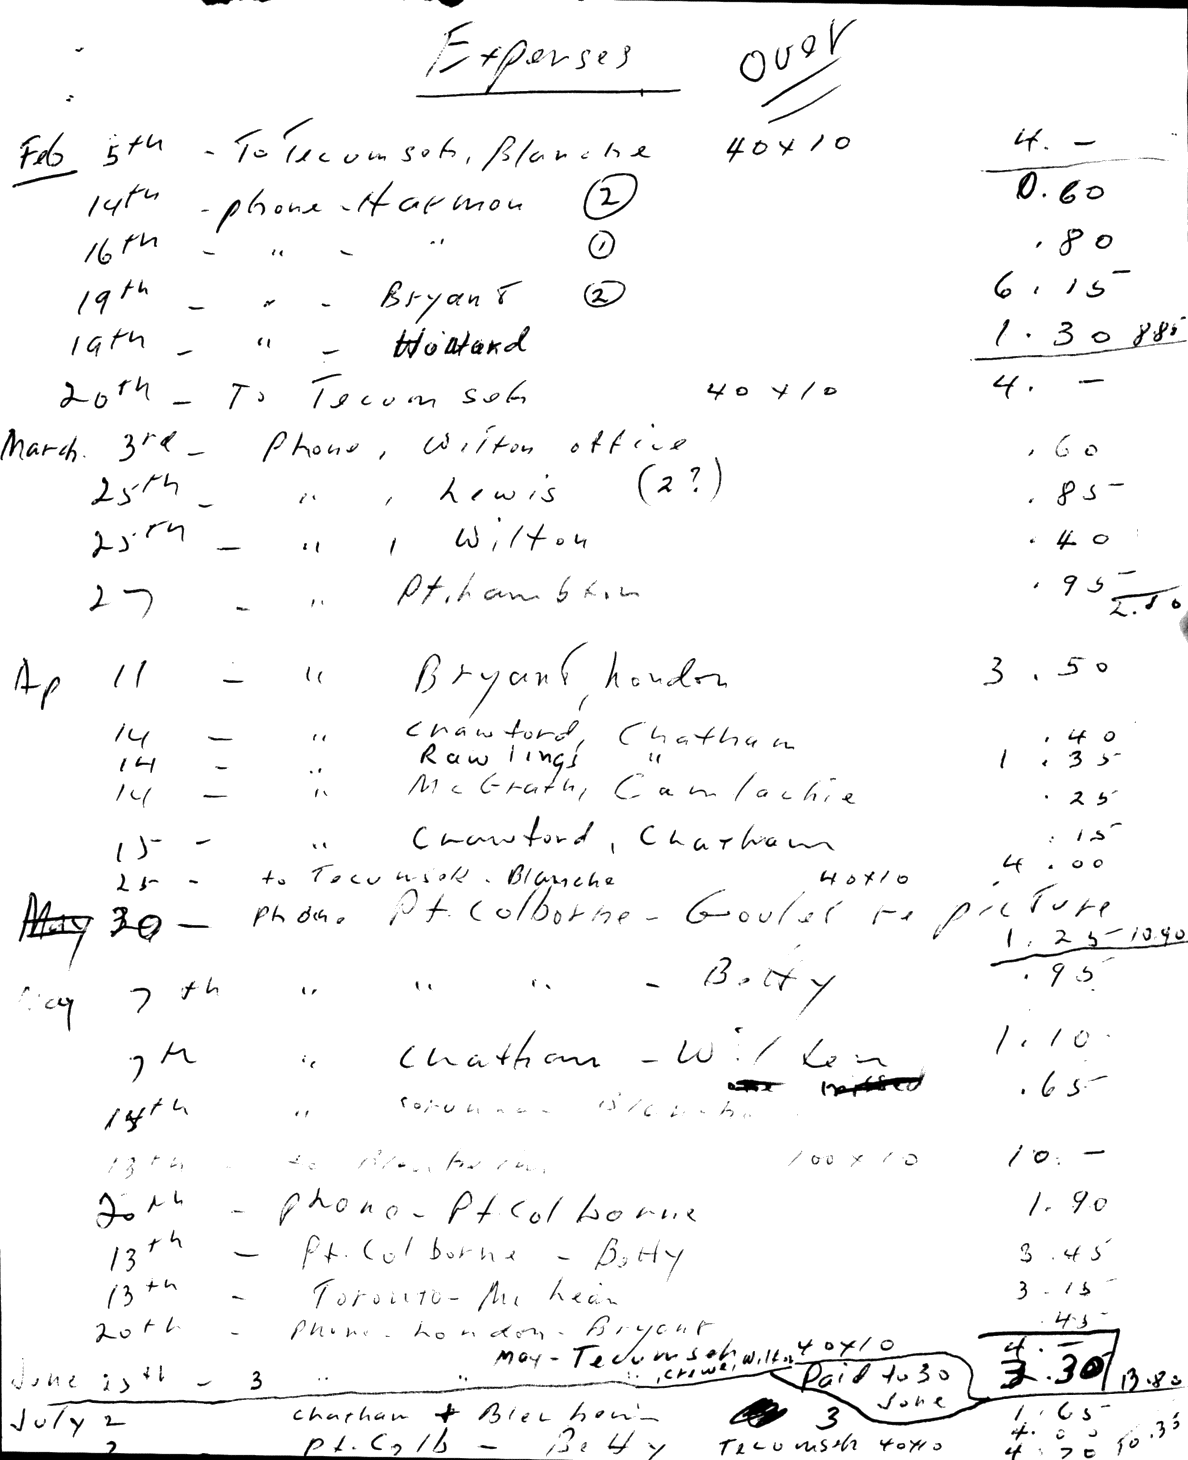 Expenses over
Feb 5th - To Tecumseh, Blanche 40x10 4. -
14th - phone - Harmon (2) 0.60
16th - " - " (1) .80
19th - " - Bryant (2) 6.15
19th - " - 1.30 885
20th - To Tecumseh 40x10 4. -
March. 3rd - Phone, Wilton office .60
25th - " , Lewis (2?) .85
25th - " , Wilton .40
27 - " Pt. Lambton .95 2.80
Ap 11 - " Bryant, London 3.50
14 - " Crawford, Chatham .40
14 - " Rawlings " 1.35
14 - " McGrath, Camlachie .25
15 - " Crawford, Chatham .15
25 - to Tecumseh - Blanche 40x10 4.00
30 - phone Pt. Colborne - Goulet re picture
1.25 10.90
May 7th " " " - Botty .95
7th " Chatham - 1.10
" .65
13th - to 100x10 10. -
20th - phone - Pt. Colborne 1.90
13th - Pt. Colborne - Botty 3.45
13th - Toronto - McLean 3.15
20th - phone - London - Bryant .45
May - Tecumseh 40x10 4. -
June 25th - 3 " " " , Crowe, Wilton Paid to 30 June 3.30 13.80
July 2 Chatham + 3 1.65
2 Pt. Colb - Botty Tecumseh 40x10 4.00
4.70 10.35